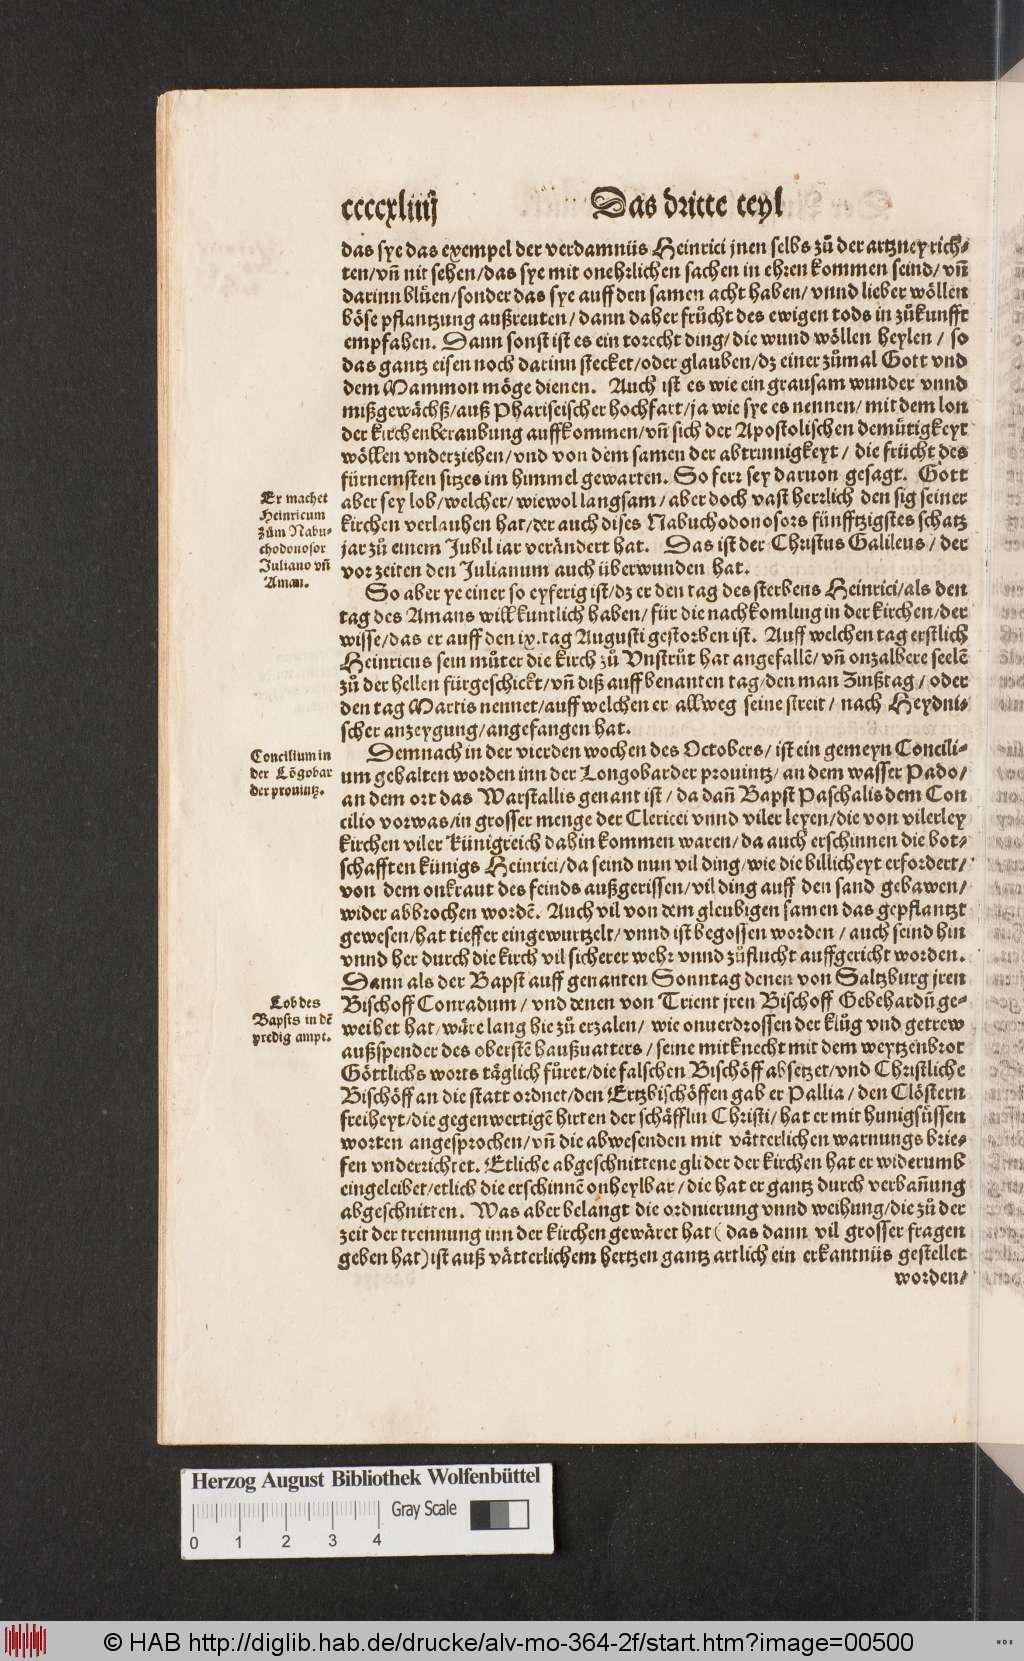 ccccxliiij
Das dritte teyl
das sye das exempel der verdamnüs Heinrici jnen selbs zů der artzney rich⸗
ten/vñ nit sehen/das sye mit onehrlichen sachen in ehren kommen seind/vñ
darinn blůen/sonder das sye auff den samen acht haben/vnnd lieber wöllen
böse pflantzung außreuten/dann daher frücht des ewigen tods in zůkunfft
empfahen. Dann sonst ist es ein torecht ding/die wund wöllen heylen/so
das gantz eisen noch darinn stecket/oder glauben/dz einer zůmal Gott vnd
dem Mammon möge dienen. Auch ist es wie ein grausam wunder vnnd
mißgewächß/auß Phariseischer hochfart/ja wie sye es nennen/mit dem lon
der kirchenberaubung auffkommen/vñ sich der Apostolischen demůtigkeyt
wöllen vnderziehen/vnd von dem samen der abtrinnigkeyt/die frücht des
fürnemsten sitzes im himmel gewarten. So ferr sey daruon gesagt. Gott
aber sey lob/welcher/wiewol langsam/aber doch vast herrlich den sig seiner
kirchen verlauhen hat/der auch dises Nabuchodonosors fünfftzigstes schatz
jar zů einem Jubil iar verändert hat. Das ist der Christus Galileus/der
vor zeiten den Julianum auch überwunden hat.
Er machet
Heinricum
zům Nabu⸗
chodonosor
Juliano vñ
Aman.
So aber ye einer so eyferig ist/dz er den tag des sterbens Heinrici/als den
tag des Amans will kuntlich haben/für die nachkomling in der kirchen/der
wisse/das er auff den ix.tag Augusti gestorben ist. Auff welchen tag erstlich
Heinricus sein můter die kirch zů Vnstrůt hat angefallē/vñ onzalbere seelē
zů der hellen fürgeschickt/vñ diß auff benanten tag/den man Zinßtag/oder
den tag Martis nennet/auff welchen er allweg seine streit/nach Heydni⸗
scher anzeygung/angefangen hat.
Demnach in der vierden wochen des Octobers/ist ein gemeyn Concili⸗
um gehalten worden inn der Longobarder prouintz/an dem wasser Pado/
an dem ort das Warstallis genant ist/da dañ Bapst Paschalis dem Con
cilio vorwas/in grosser menge der Clericei vnnd viler leyen/die von vilerley
kirchen viler Künigreich dahin kommen waren/da auch erschinnen die bot⸗
schafften künigs Heinrici/da seind nun vil ding/wie die billicheyt erfordert/
von dem onkraut des feinds außgerissen/vil ding auff den sand gebawen/
wider abbrochen wordē. Auch vil von dem gleubigen samen das gepflantzt
gewesen/hat tieffer eingewurtzelt/vnnd ist begossen worden/auch seind hin
vnnd her durch die kirch vil sicherer wehr vnnd zůflucht auffgericht worden.
Concilium in
der Lōgobar
der prouintz.
Dann als der Bapst auff genanten Sonntag denen von Saltzburg jren
Bischoff Conradum/vnd denen von Trient jren Bischoff Gebehardū ge⸗
weihet hat/wäre lang hie zů erzalen/wie onuerdrossen der klůg vnd getrew
außspender des oberstē haußuatters/seine mitknecht mit dem weytzenbrot
Göttlichs worts täglich fůret/die falschen Bischöff absetzet/vnd Christliche
Bischöff an die statt ordnet/den Ertzbischöffen gab er Pallia/den Clöstern
freiheyt/die gegenwertigē hirten der schäfflin Christi/hat er mit hunigsüssen
worten angesprochen/vñ die abwesenden mit vätterlichen warnungs brie⸗
fen vnderrichtet. Etliche abgeschnittene glider der kirchen hat er widerumb
eingeleibet/etlich die erschinnē onheylbar/die hat er gantz durch verbañung
abgeschnitten. Was aber belangt die ordnierung vnnd weihung/die zů der
zeit der trennung inn der kirchen gewäret hat (das dann vil grosser fragen
geben hat) ist auß vätterlichem hertzen gantz artlich ein erkantnüs gestellet
Lob des
Bapsts in dē
predig ampt.
worden/
Herzog August Bibliothek Wolfenbüttel
Gray Scale
0 1 2 3 4
© HAB http://diglib.hab.de/drucke/alv-mo-364-2f/start.htm?image=00500